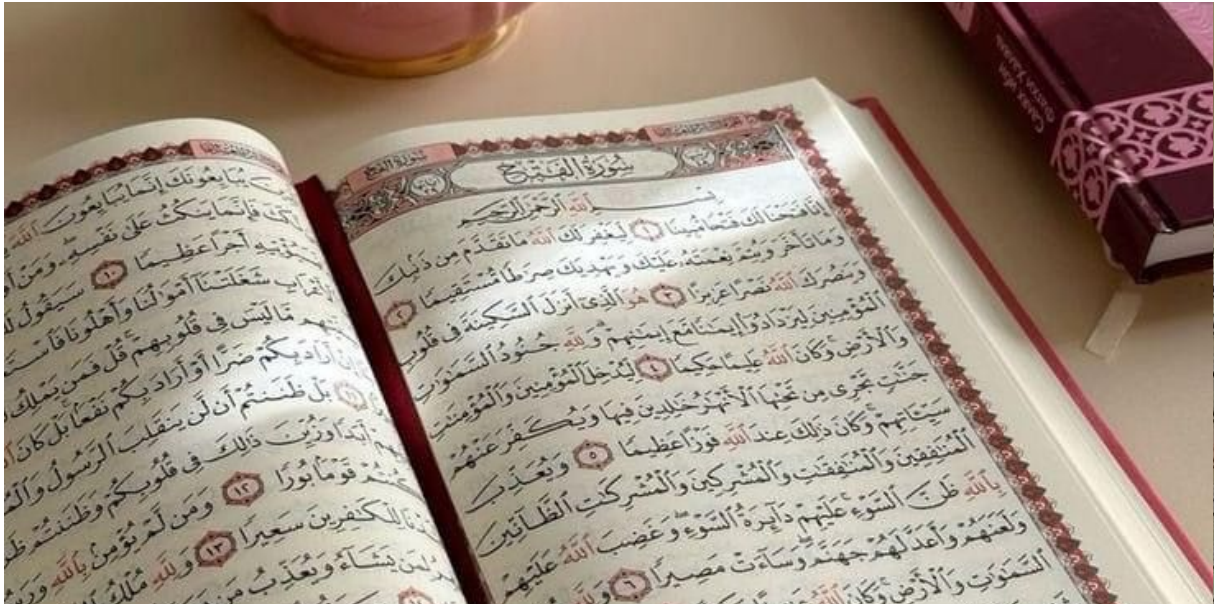 سورة الفتح
سُورَةُ الفَتْحِ
بِسْمِ اللَّهِ الرَّحْمَٰنِ الرَّحِيمِ
إِنَّا فَتَحْنَا لَكَ فَتْحًا مُّبِينًا ١ لِّيَغْفِرَ لَكَ اللَّهُ مَا تَقَدَّمَ مِن ذَنۢبِكَ
وَمَا تَأَخَّرَ وَيُتِمَّ نِعْمَتَهُۥ عَلَيْكَ وَيَهْدِيَكَ صِرَٰطًا مُّسْتَقِيمًا ٢
وَيَنصُرَكَ اللَّهُ نَصْرًا عَزِيزًا ٣ هُوَ الَّذِىٓ أَنزَلَ السَّكِينَةَ فِى قُلُوبِ
الْمُؤْمِنِينَ لِيَزْدَادُوٓا۟ إِيمَٰنًا مَّعَ إِيمَٰنِهِمْ وَلِلَّهِ جُنُودُ السَّمَٰوَٰتِ
وَالْأَرْضِ وَكَانَ اللَّهُ عَلِيمًا حَكِيمًا ٤ لِّيُدْخِلَ الْمُؤْمِنِينَ وَالْمُؤْمِنَٰتِ
جَنَّٰتٍ تَجْرِى مِن تَحْتِهَا الْأَنْهَٰرُ خَٰلِدِينَ فِيهَا وَيُكَفِّرَ عَنْهُمْ
سَيِّـَٔاتِهِمْ وَكَانَ ذَٰلِكَ عِندَ اللَّهِ فَوْزًا عَظِيمًا ٥ وَيُعَذِّبَ
الْمُنَٰفِقِينَ وَالْمُنَٰفِقَٰتِ وَالْمُشْرِكِينَ وَالْمُشْرِكَٰتِ الظَّآنِّينَ
بِاللَّهِ ظَنَّ السَّوْءِ عَلَيْهِمْ دَآئِرَةُ السَّوْءِ وَغَضِبَ اللَّهُ عَلَيْهِمْ
وَلَعَنَهُمْ وَأَعَدَّ لَهُمْ جَهَنَّمَ وَسَآءَتْ مَصِيرًا ٦ وَلِلَّهِ
السَّمَٰوَٰتِ وَالْأَرْضِ وَكَانَ اللَّهُ
يُبَايِعُونَكَ إِنَّمَا يُبَايِعُونَ اللَّهَ
فَإِنَّمَا يَنكُثُ عَلَىٰ نَفْسِهِۦ وَمَنْ
فَسَيُؤْتِيهِ أَجْرًا عَظِيمًا ١٠ سَيَقُولُ
الْأَعْرَابِ شَغَلَتْنَآ أَمْوَٰلُنَا وَأَهْلُونَا
مَّا لَيْسَ فِى قُلُوبِهِمْ قُلْ فَمَن يَمْلِكُ
إِنْ أَرَادَ بِكُمْ ضَرًّا أَوْ أَرَادَ بِكُمْ نَفْعًۢا بَلْ كَانَ
١١ بَلْ ظَنَنتُمْ أَن لَّن يَنقَلِبَ الرَّسُولُ
أَبَدًا وَزُيِّنَ ذَٰلِكَ فِى قُلُوبِكُمْ وَظَنَنتُمْ
وَكُنتُمْ قَوْمًۢا بُورًا ١٢ وَمَن لَّمْ يُؤْمِنۢ بِاللَّهِ
لِلْكَٰفِرِينَ سَعِيرًا ١٣ وَلِلَّهِ مُلْكُ
لِمَن يَشَآءُ وَيُعَذِّبُ مَن